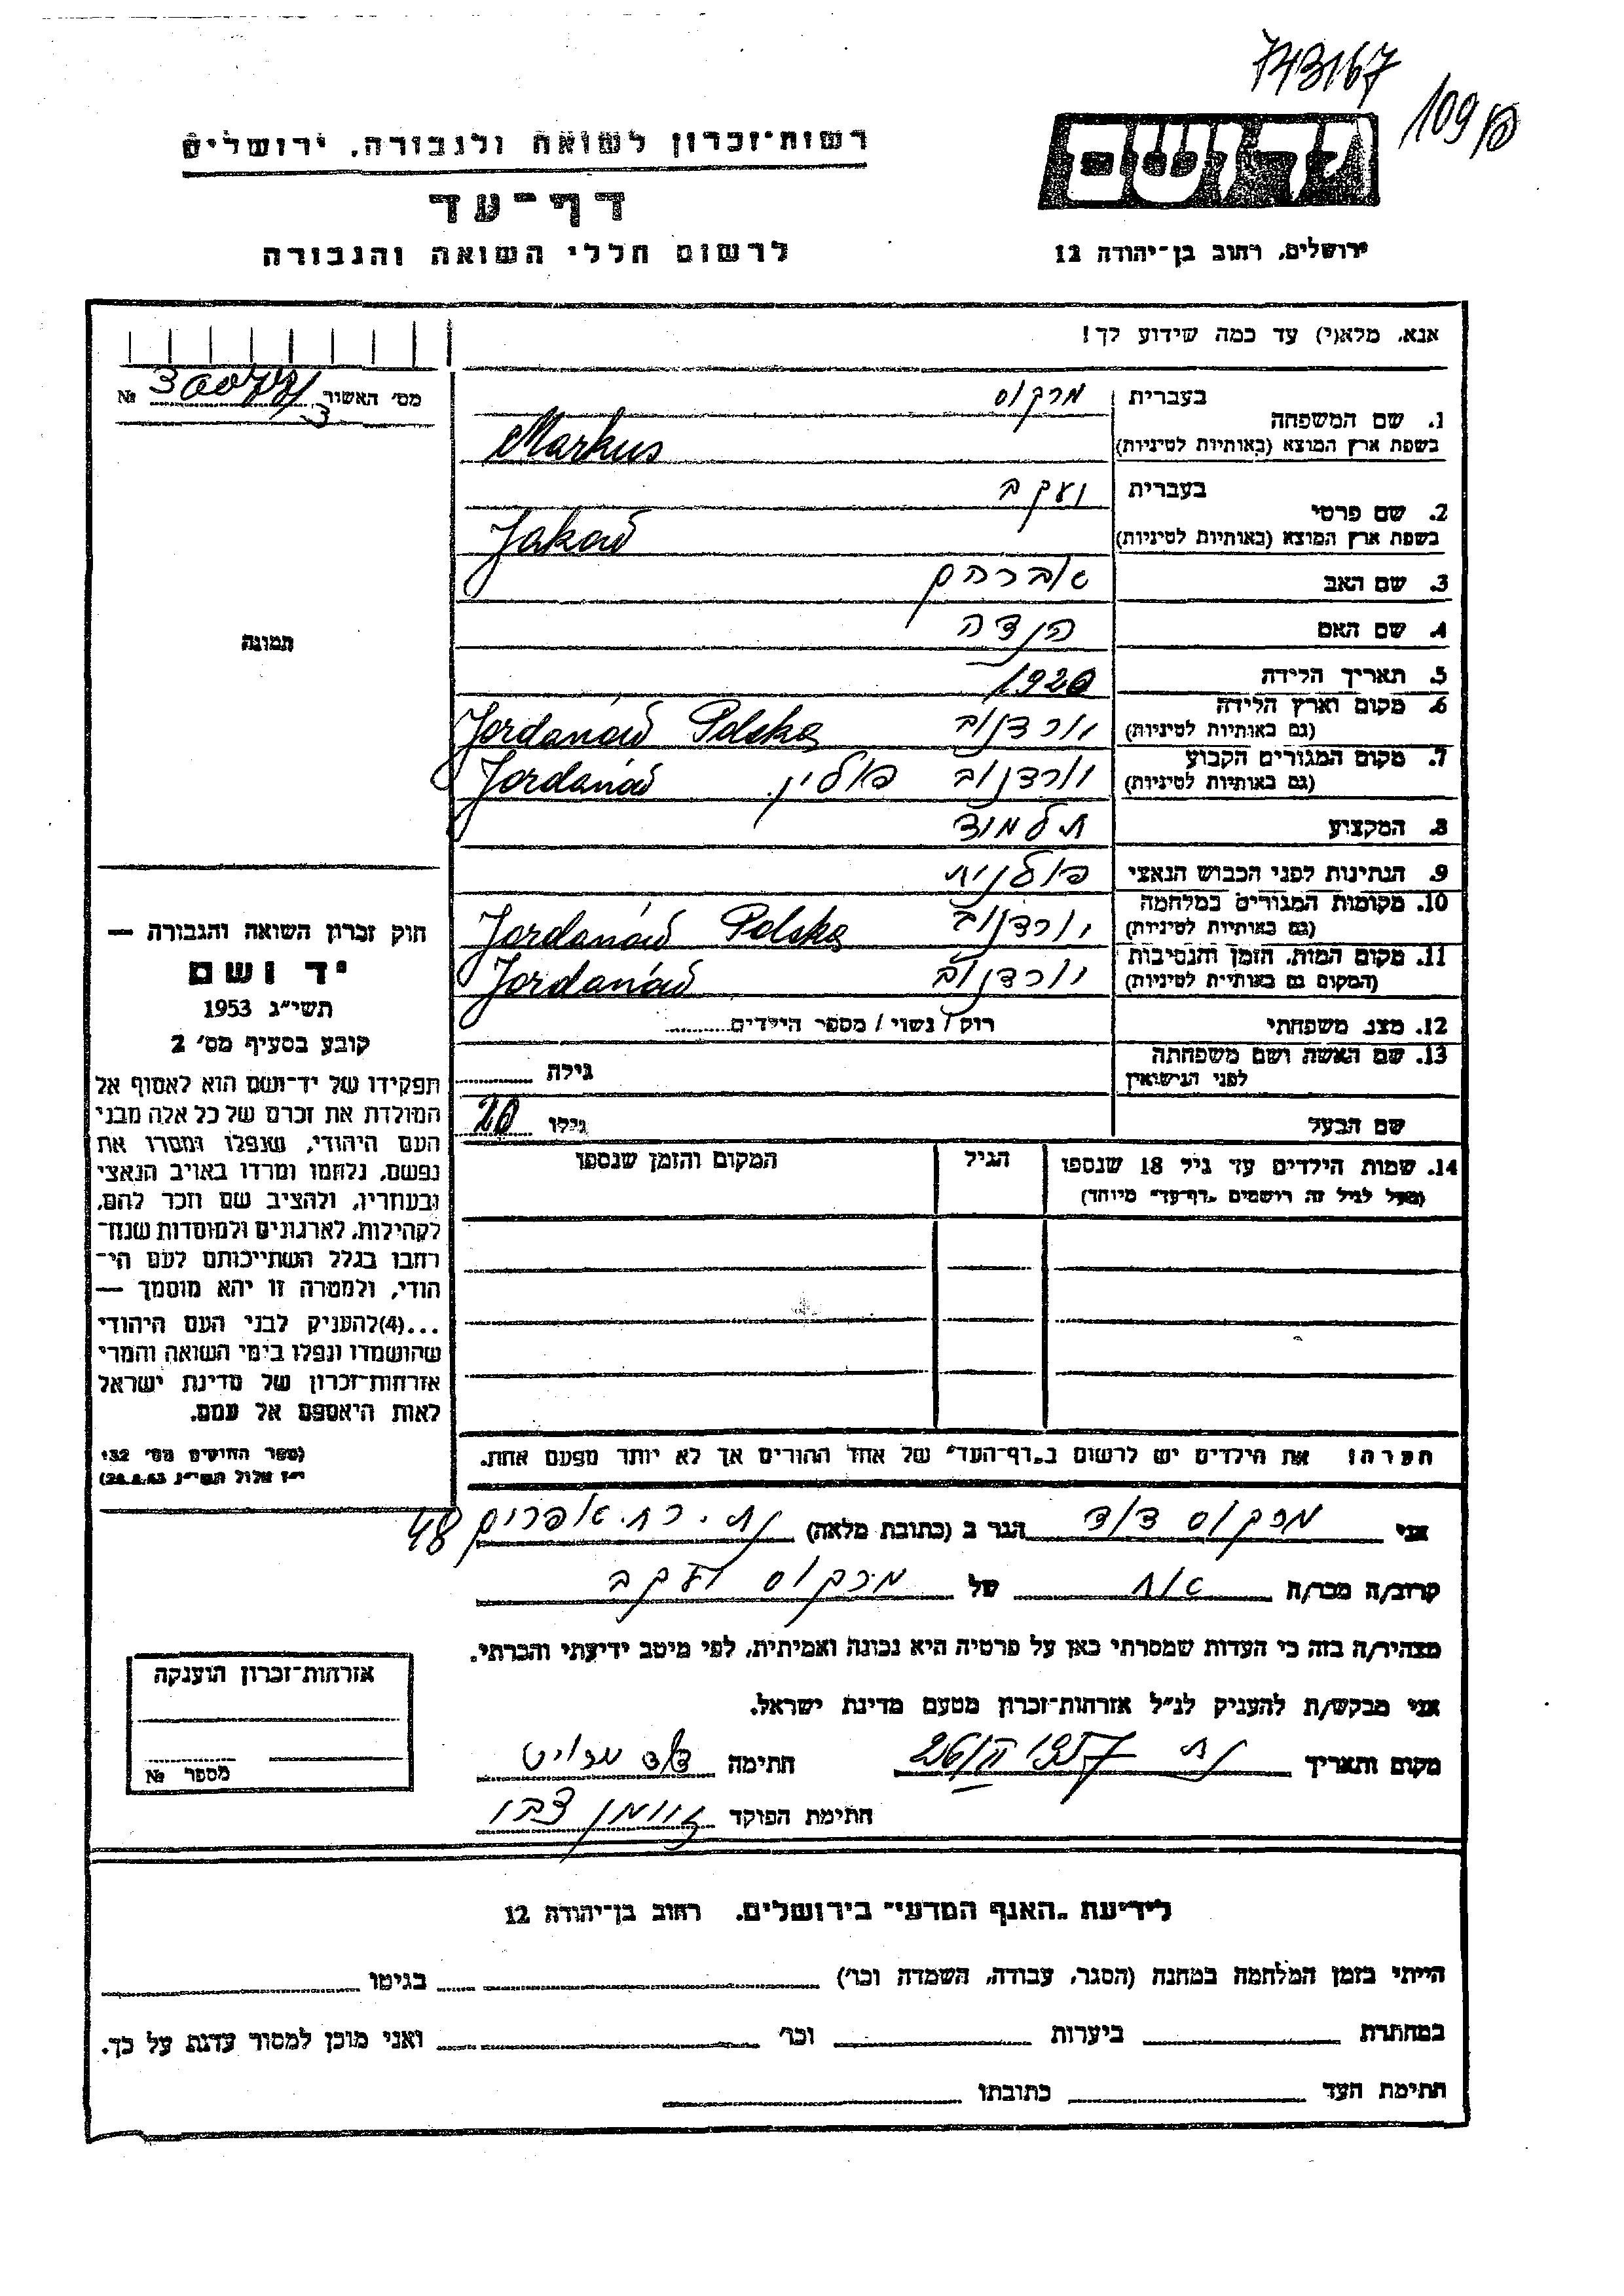 743167
109
רשות־זכרון לשואה ולגבורה, ירושלים
יד ושם
דף־עד
לרשום חללי השואה והגבורה
ירושלים, רחוב בן־יהודה 12
אנא, מלא(י) עד כמה שידוע לך!
מס׳ האשור №
1. שם המשפחה
בעברית מרקוס
בשפת ארץ המוצא (באותיות לטיניות) Markus
2. שם פרטי
בעברית יעקב
בשפת ארץ המוצא (באותיות לטיניות) Jakow
3. שם האב אברהם
4. שם האם הנדה
5. תאריך הלידה 1920
6. מקום וארץ הלידה
(גם באותיות לטיניות) יורדנוב Jordanów Polska
7. מקום המגורים הקבוע
(גם באותיות לטיניות) יורדנוב פולין. Jordanów
8. המקצוע תלמוד
9. הנתינות לפני הכבוש הנאצי פולנית
10. מקומות המגורים במלחמה
(גם באותיות לטיניות) יורדנוב Jordanów Polska
11. מקום המות, הזמן והנסיבות
(המקום גם באותיות לטיניות) יורדנוב Jordanów
12. מצב משפחתי רוק / נשוי / מספר הילדים
13. שם האשה ושם משפחתה
לפני הנישואין גילה
שם הבעל גילו 20
14. שמות הילדים עד גיל 18 שנספו הגיל המקום והזמן שנספו
(מעל לגיל זה רושמים „דף־עד״ מיוחד)
תמונה
חוק זכרון השואה והגבורה —
יד ושם
תשי״ג 1953
קובע בסעיף מס׳ 2
תפקידו של יד־ושם הוא לאסוף אל
המולדת את זכרם של כל אלה מבני
העם היהודי, שנפלו ומסרו את
נפשם, נלחמו ומרדו באויב הנאצי
ובעוזריו, ולהציב שם וזכר להם,
לקהילות, לארגונים ולמוסדות שנח־
רחבו בגלל השתייכותם לעם הי־
הודי, ולמטרה זו יהא מוסמך —
...(4) להעניק לבני העם היהודי
שהושמדו ונפלו בימי השואה והמרי
אזרחות־זכרון של מדינת ישראל
לאות היאספם אל עמם.
(ספר החוקים מס׳ 132
י״ז אלול תשי״ג 28.8.53)
הערה: את הילדים יש לרשום ב„דף־העד״ של אחד ההורים אך לא יותר מפעם אחת.
אני מרקוס דוד הגר ב (כתובת מלאה) אפרים 48
קרוב/ה מכר/ה אח של מרקוס יעקב
מצהיר/ה בזה כי העדות שמסרתי כאן על פרטיה היא נכונה ואמיתית, לפי מיטב ידיעתי והכרתי.
אני מבקש/ת להעניק לנ״ל אזרחות־זכרון מטעם מדינת ישראל.
מקום ותאריך חתימה
חתימת הפוקד
אזרחות־זכרון הוענקה
מספר №
לידיעת „האגף המדעי״ בירושלים, רחוב בן־יהודה 12
הייתי בזמן המלחמה במחנה (הסגר, עבודה, השמדה וכו׳) בגיטו
במחתרת ביערות וכו׳ ואני מוכן למסור עדות על כך.
חתימת העד כתובתו